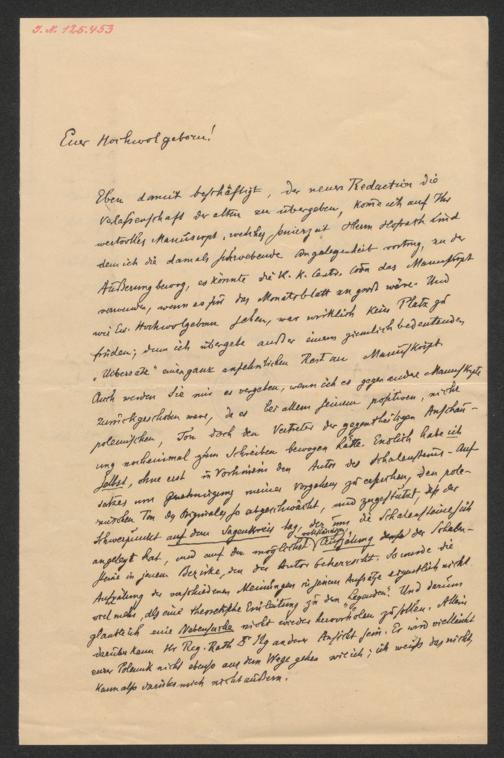 I.N. 125.453
Euer Hochwolgeborn!
Eben damit beschäftigt, der neuen Redaction die
Verlassenschaft der alten zu übergeben, komme ich auf Ihr
wertvolles Manuscript, welches seinerzeit Herrn Hofrath Lind
dem ich die damals schwebende Angelegenheit vortrug, zu der
Äußerung bewog, es könnte die K. K. Centr. Com das Manuskript
verwenden, wenn es für das Monatsblatt zu groß wäre. Und
wie Ew. Hochwolgeboren sahen, war wirklich kein Platz zu
finden; denn ich übergebe außer einem ziemlich bedeutenden
"Uebersatz" einen ganz ansehnlichen Rest an Manuskript.
Auch werden Sie mir es vergeben, wenn ich es gegen andere Manuskripte
zurückgeschoben habe, da es bei allem seinem positiven, nicht
polemischen, Ton doch den Vertreter der gegentheiligen Anschau-
ung noch einmal zum Schreiben bewogen hätte. Endlich habe ich
selbst, ohne erst im Vorhinein den Autor des Schalensteins-Auf-
satzes um Genehmigung meines Vorgehens zu ersuchen, den pole-
mischen Ton des Originales so abgeschwächt, und zugestutzt, daß der
Schwerpunkt auf dem Sagenkreis lag, der uns die Schalensteine sich
angelegt hat, und auf der möglichst vollständigen Aufzälung der Schalen-
steine in jenem Bezirke, den der Autor beherrscht. So wurde die
Aufzälung der verschiedenen Meinungen in jenem Aufsatz eigentlich nicht
viel mehr, als eine theoretische Einleitung zu den "Legenden". Und darum
glaubte ich eine Nebensache nicht wieder hervorholen zu sollen. Allein
darüber kann Hr. Reg. Rath Dr. Ilg anderer Ansicht sein. Er wird vielleicht
einer Polemik nicht ebenso aus dem Wege gehen wie ich; ich weiß das nicht,
kann also darüber mich nicht äußern.